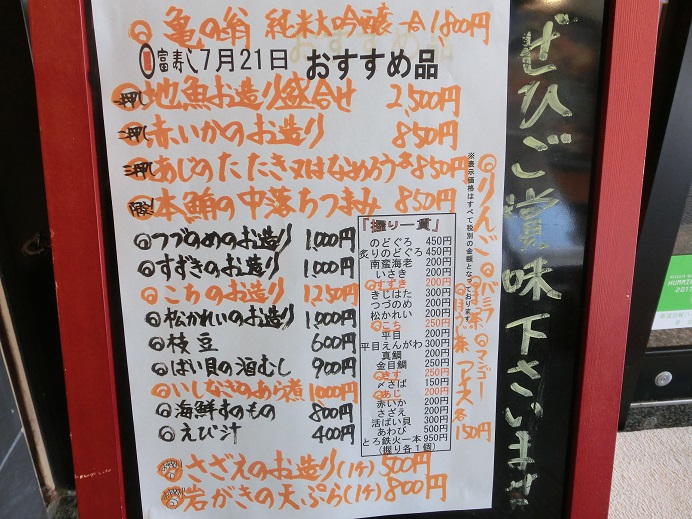 亀の翁 純米大吟醸 一合1,800円
富寿し 7月21日 おすすめ品
一押し 地魚お造り盛合せ 2,500円
二押し 赤いかのお造り 850円
三押し あじのたたき又はなめろう 各850円
本鮪の中落ちつまみ 850円
つづのめのお造り 1,000円
すずきのお造り 1,000円
こちのお造り 1,250円
松かれいのお造り 1,000円
枝豆 600円
ばい貝の酒むし 900円
いしなぎのあら煮 1,000円
海鮮すのもの 800円
えび汁 400円
さざえのお造り(1ケ) 500円
岩がきの天ぷら(1ケ) 800円
「握り一貫」
のどぐろ 450円
炙りのどぐろ 450円
南蛮海老 200円
いさき 200円
すずき 200円
きじはた 300円
つづのめ 200円
松かれい 200円
こち 250円
平目 200円
平目えんがわ 300円
真鯛 200円
金目鯛 250円
きす 250円
〆さば 150円
あじ 200円
赤いか 200円
さざえ 200円
活ばい貝 300円
あわび 500円
とろ鉄火一本 950円
(握り各1個)
※表示価格はすべて税別の金額となっております。
りんご バニラ マンゴー
ほうじ茶 アイス 各150円
ぜひご賞味下さいませ